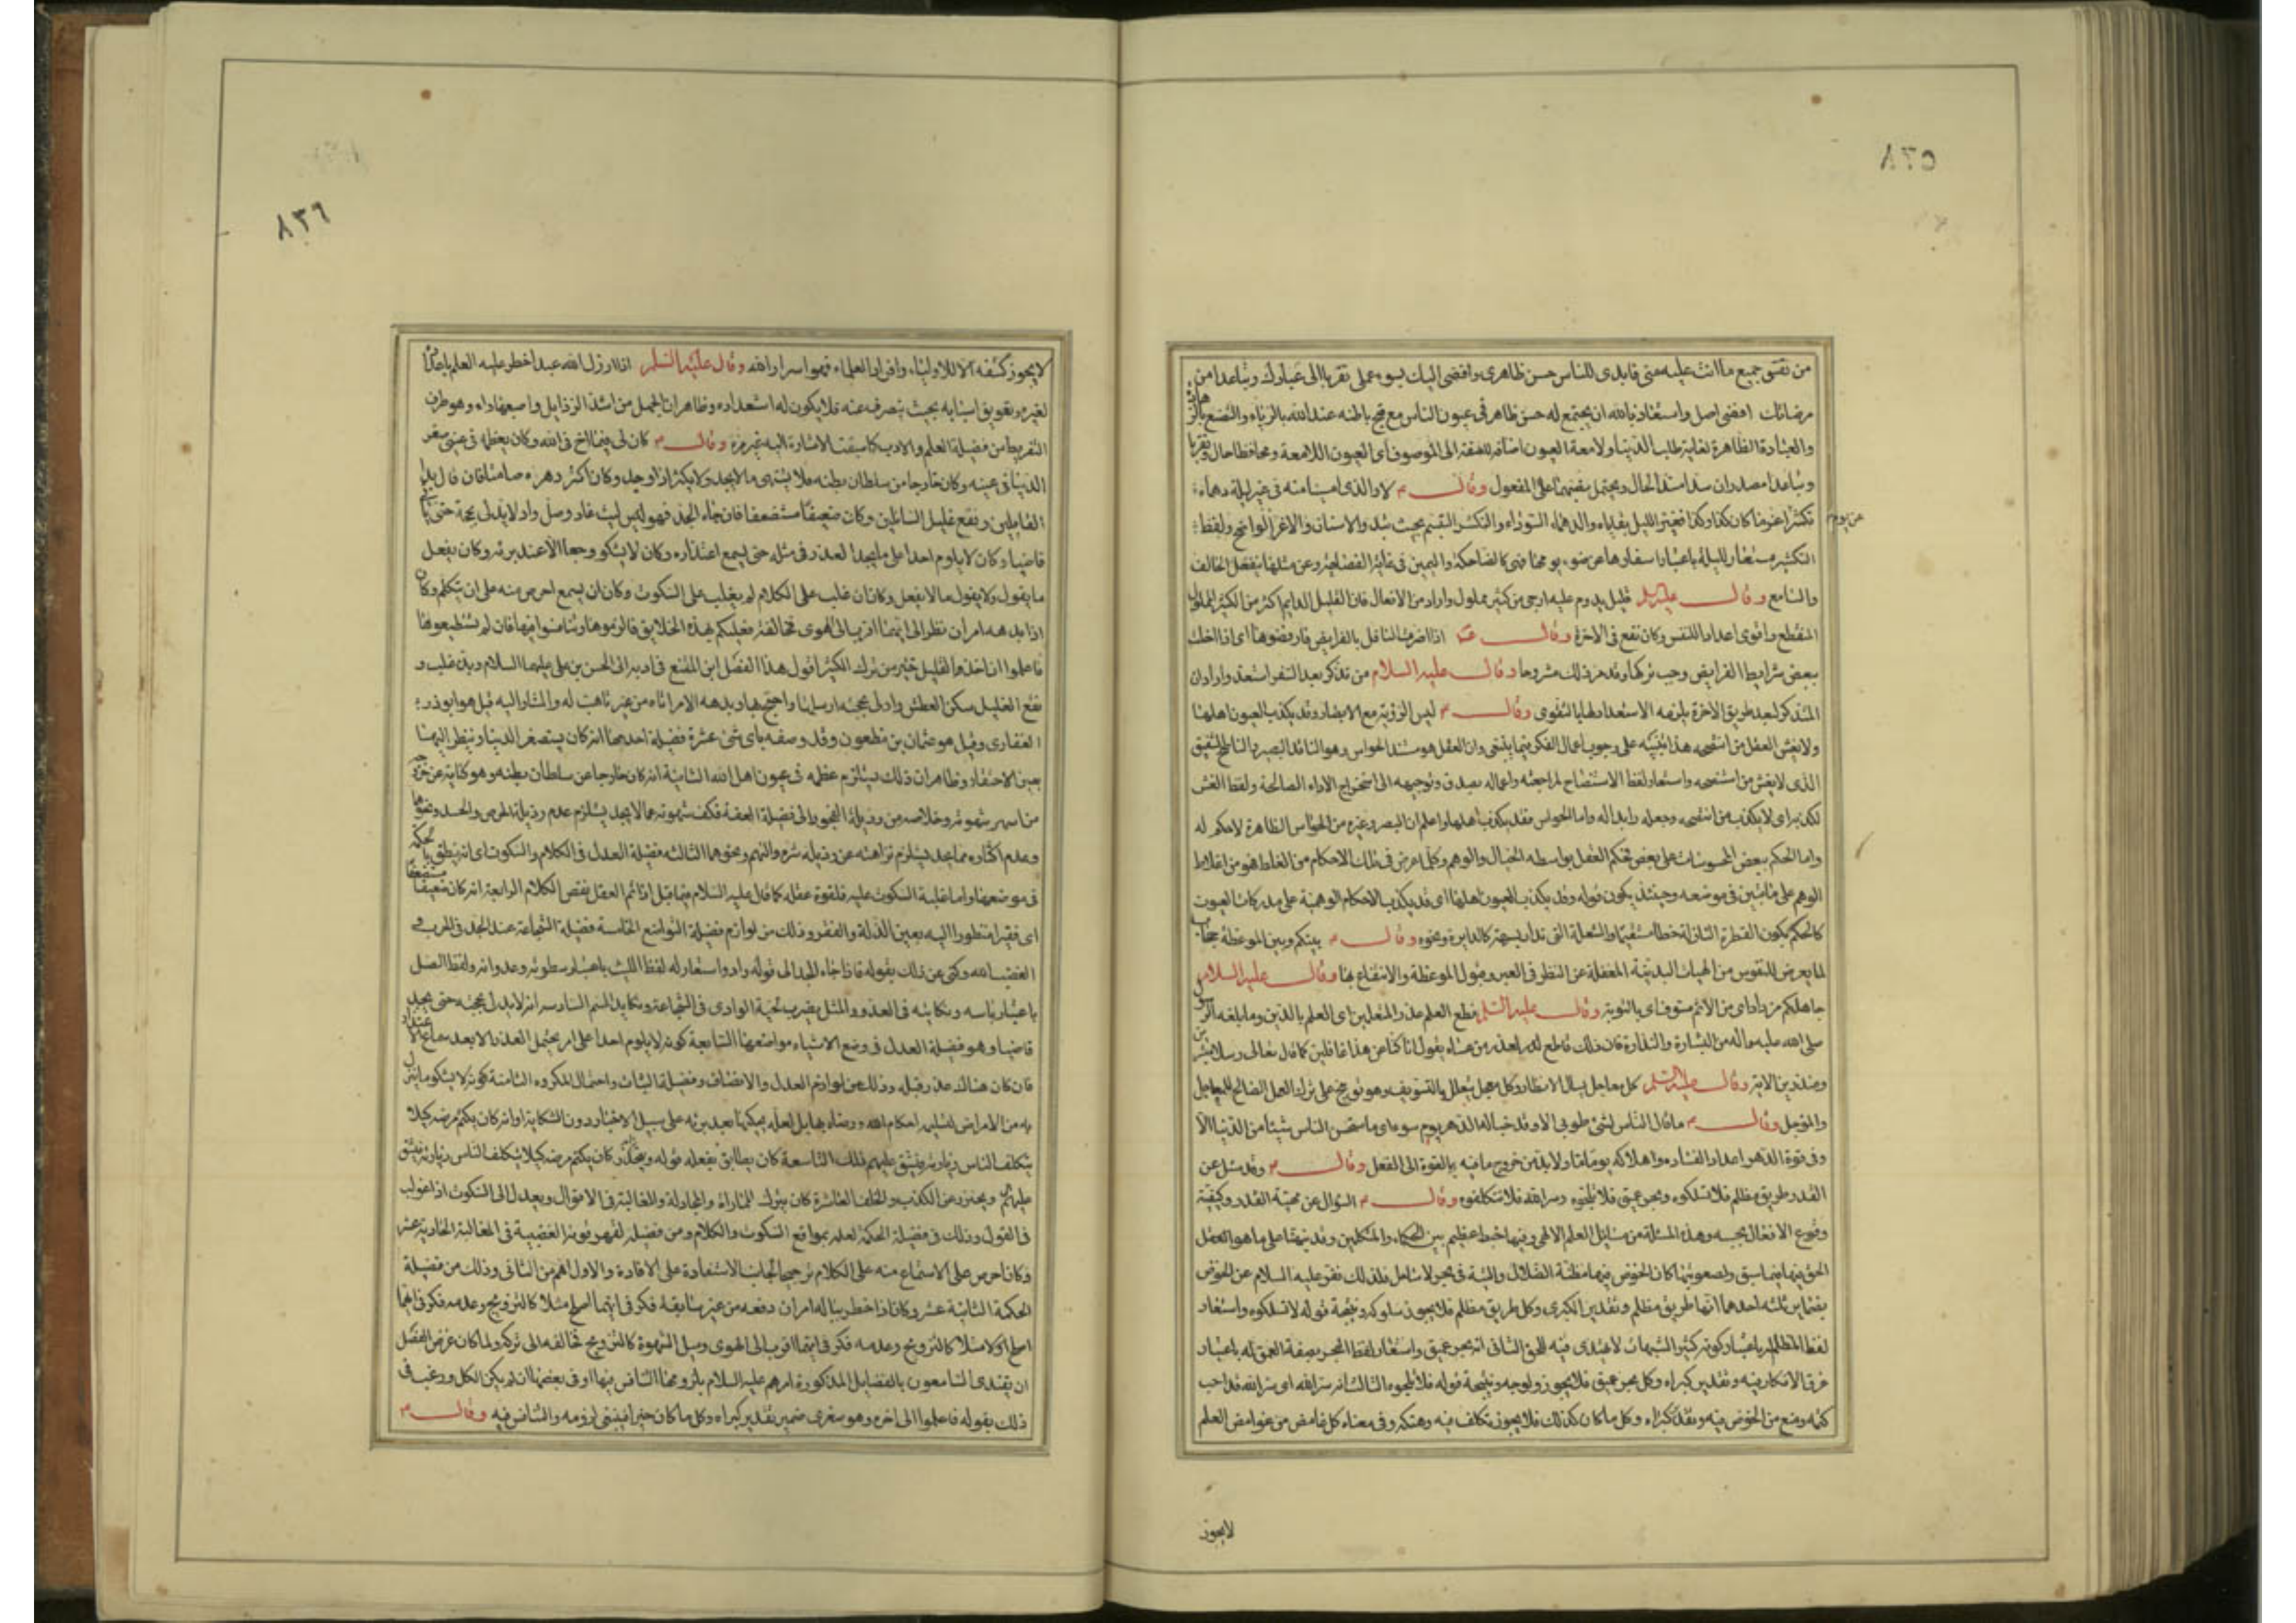 من تفتق جميع ما انت عليه منى فابدى للناس حسن ظاهرى وافضى اليك بسوء عملى تقربا الى عبادك وتباعدا من
مرضاتك افضى اصل واستعاذ بالله ان يجتمع له حسن ظاهر فى عيون الناس مع قبح باطنه عند الله بالرياء والتصنع
والعبادة الظاهرة لغاية طلب الدنيا ولامعة العيون اضافة للصفة الى الموصوف اى العيون اللامعة ومحافظا حال وتقربا
وتباعدا مصدران سدا مسد الحال ويحتمل نصبهما على المفعول وقال م لا والذى امسينا منه فى غبر ليلة دهماء
تكشر عن يوم اغر ما كان كذا وكذا فغبر الليل بقاياه والدهماء السوداء والتكشر التبسم بحيث تبدو الاسنان والاغر الواضح ولفظ
التكشر مستعار لليلة باعتبار اسفارها عن ضوء يومها فهى كالضاحكة واليمين فى غاية الفصاحة
والسامع وقال عليه السلم قليل يدوم عليه ارجى من كثير مملول واراد من الافعال فان القليل الدايم اكثر من الكثير المملول
المنقطع واقوى اعدادا للنفس وكان نفع فى الاخرة وقال اذا اضرت النوافل بالفرايض فارفضوها اى اذا اخلت
ببعض شرايط الفرايض وجب تركها وقد مر ذلك مشروحا وقال عليه السلام من تذكر بعد السفر استعد واراد ان
المتذكر لبعد طريق الاخرة يلزمه الاستعداد لها بالتقوى وقال م ليس الرؤية مع الابصار وقد يكذب العيون اهلها
ولا يغش العقل من انتصحه هذا تنبيه على وجوب اعمال الفكر فيما ينبغى وان العقل هو سند الحواس وهو الناقد البصير والناصح الشفيق
الذى لا يغش من استنصحه واستعار لفظ الاستنصاح لمراجعته واعماله بصدق وتوجيهه الى استخراج الاراء الصالحة ولفظ الغش
لكذبه اى لا يكذب من انتصحه وجعله رايدا له واما الحواس فقد يكذب اهلها واعلم ان البصر وغيره من الحواس الظاهرة لا حكم له
واما الحكم ببعض المحسوسات على بعض فحكم العقل بواسطة الخيال والوهم وكلما عرض فى تلك الاحكام من الغلط فهو من اغلاط
الوهم على ما تبين فى موضعه وحينئذ يكون قوله وقد يكذب العيون اهلها اى قد يكذب الاحكام الوهمية على مدركات العيون
كالحكم بكون القطرة النازلة خطا مستقيما والشعلة التى تدار بسرعة كالدايرة ونحوه وقال م بينكم وبين الموعظة حجاب
لما يعرض للنفوس من الهيات البدنية المغفلة عن النظر فى العبر وقبول الموعظة والانتفاع بها وقال عليه السلام
جاهلكم مزداد اى من الاثم مسوف اى بالتوبة وقال عليه السلم قطع العلم عذر المتعللين اى العلم بالدين وما بلغه الرسول
صلى الله عليه واله من البشارة والنذارة فان ذلك قاطع لعذر من عساه يقول انا كنا عن هذا غافلين كما قال تعالى رسلا مبشرين
ومنذرين الاية وقال عليه السلم كل معاجل يسال الانظار وكل مؤجل يتعلل بالتسويف وهو توبيخ على ترك العمل الصالح للمعاجل
والمؤجل وقال م ما قال الناس لشئ طوبى الا وقد خبا له الدهر يوم سوء اى ما استحسن الناس شيئا من الدنيا الا
وفى قوة الدهر اعداد الفساده واهلاكه يوما ما ولا بد من خروج ما فيه بالقوة الى الفعل وقال م وقد سئل عن
القدر طريق مظلم فلا تسلكوه وبحر عميق فلا تلجوه وسر الله فلا تتكلفوه وقال م السؤال عن مهية القدر وكيفية
وقوع الافعال بحسبه وهذه المسئلة من مسائل العلم الالهى وفيها خبط عظيم بين الحكماء والمتكلمين وقد نبهنا على ما هو العقل
الحق فيها فيما سبق ولصعوبتها كان الخوض فيها مظنة الضلال والتيه فى بحر لا ساحل له فلذلك نفر عليه السلام عن الخوض
بقياس ثلثة احدها انها طريق مظلم وتقدير الكبرى وكل طريق مظلم فلا يجوز سلوكه ونتيجة قوله لا تسلكوه واستعار
لفظ المظلم باعتبار كونه كثير الشبهات لا يهتدى فيه للحق الثانى انه بحر عميق واستعار لفظ البحر بصفة العمق له باعتبار
غرق الافكار فيه وتقدير كبراه وكل بحر عميق فلا يجوز ولوجه ونتيجة قوله فلا تلجوه الثالث انه سر الله اى سر الله قد احب
كتمه ومنع من الخوض فيه وتقدير كبراه وكل ما كان كذلك فلا يجوز تكلف فيه وهتكه وفى معناه كل غامض من غوامض العلم
لايجوز
٨٣٦
لا يجوز كشفه الا للاولياء وافراد العلماء فهو اسرار الله وقال عليه السلم اذا ارذل الله عبدا حظر عليه العلم
لغيره وتعويق اسبابه بحيث ينصرف عنه فلا يكون له استعداده وظاهر ان الجهل من اشد الرذايل واصعبها داء وهو طرف
التفريط من فضيلة العلم والادب كما سبقت الاشارة اليه غير مرة وقال م كان لى فيما مضى اخ فى الله وكان يعظمه فى عينى صغر
الدنيا فى عينه وكان خارجا من سلطان بطنه فلا يشتهى ما لا يجد ولا يكثر اذا وجد وكان اكثر دهره صامتا فان قال بذ
القايلين ونقع غليل السائلين وكان ضعيفا مستضعفا فان جاء الجد فهو ليث عاد وصل واد لا يدلى بحجة حتى ياتى
قاضيا وكان لا يلوم احدا على ما يجد العذر فى مثله حتى يسمع اعتذاره وكان لا يشكو وجعا الا عند برئه وكان يفعل
ما يقول ولا يقول ما لا يفعل وكان ان غلب على الكلام لم يغلب على السكوت وكان ان يسمع احرص منه على ان يتكلم وكان
اذا بدهه امران نظر الى ايهما اقرب الى الهوى فخالفه فعليكم بهذه الخلايق فالزموها وتنافسوا فيها فان لم تستطيعوها
فاعلموا ان اخذ القليل خير من ترك الكثير اقول هذا الفصل ابن المقفع فى ادبه الى الحسن بن على عليهما السلام وبذ غلب و
نقع الغليل سكن العطش وادلى بحجته ارسلها واحتج بها وبدهه الامر اتاه من غير تاهب له والمشار اليه قيل هو ابو ذر
الغفارى وقيل هو عثمان بن مظعون وقد وصفه باثنى عشرة فضيلة احديها انه كان يستصغر الدنيا وينظر اليها
بعين الاحتقار وظاهر ان ذلك يستلزم عظمه فى عيون اهل الله الثانية انه كان خارجا عن سلطان بطنه وهو كناية عن خروجه
من اسر شهوته وخلاصه من رذيلة الفجور الى فضيلة العفة فكف شهوته عما لا يجد يستلزم عدم رذيلة الحرص والحسد ونحوهما
وعدم اكثاره مما يجد يستلزم نزاهته عن رذيلة شره والنهم ونحوهما الثالثة فضيلة العدل فى الكلام والسكوت اى انه ينطق بالحكمة
فى موضعها واما غلبة السكوت عليه فلقوة عقله كما قال عليه السلام فيما قبل اذا تم العقل نقص الكلام الرابعة انه كان ضعيفا مستضعفا
اى فقيرا منظورا اليه بعين الذلة والفقر وذلك من لوازم فضيلة التواضع الخامسة فضيلة الشجاعة عند الجد فى الحرب و
الغضب لله وكنى عن ذلك بقوله فاذا جاء الجد الى قوله واد واستعار له لفظ الليث باعتبار سطوته وعدوانه ولفظ الصل
باعتبار باسه ونكايته فى العدو والمثل يضرب بحية الوادى فى الشجاعة ونكاية السم السادسة انه لا يدلى بحجته حتى يجد
قاضيا وهو فضيلة العدل فى وضع الاشياء مواضعها السابعة كونه لا يلوم احدا على امر يحتمل العذر الا بعد سماع الاعتذار
فان كان هناك عذر قبله وذلك من لوازم العدل والانصاف وفضيلة الثبات واحتمال المكروه الثامنة كونه لا يشكو ما ينزل
به من الامراض لتسليمه احكام الله ورضاه بها بل لعله يحكيها بعد برئه على سبيل الاخبار دون الشكاية او انه كان يكتم مرضه كيلا
يتكلف الناس زيارته فيشق عليهم ذلك التاسعة كان يطابق بفعله قوله
عليهم ويحترز عن الكذب والخلف العاشرة كان يترك المماراة والمجادلة والمغالبة فى الاقوال ويعدل الى السكوت اذا غولب
فى القول وذلك فى فضيلة الحكمة لعلمه بمواقع السكوت والكلام ومن فضيلة لقهر قوته الغضبية فى المغالبة الحادية عشر
وكان احرص على الاستماع منه على الكلام ترجيحا لجانب الاستفادة على الافادة والاول اهم من الثانى وذلك من فضيلة
الحكمة الثانية عشر وكان اذا خطر بباله امران دفعه من غير سابقة فكر فى ايهما اصلح مثلا كالتزويج وعدمه فكر فى ايهما
اصلح اولا مثلا كالتزويج وعدمه فكر فى ايهما اقرب الى الهوى وميل الشهوة كالتزويج فخالفه الى تركه ولما كان غرض الفصل
ان يقتدى السامعون بالفضايل المذكورة امرهم عليه السلام بلزومها التنافس فيها او فى بعضها ان لم يكن الكل ورغب فى
ذلك بقوله فاعلموا الى اخره وهو صغرى ضمير تقدير كبراه وكل ما كان خيرا فينبغى لزومه والتنافس فيه وقال م